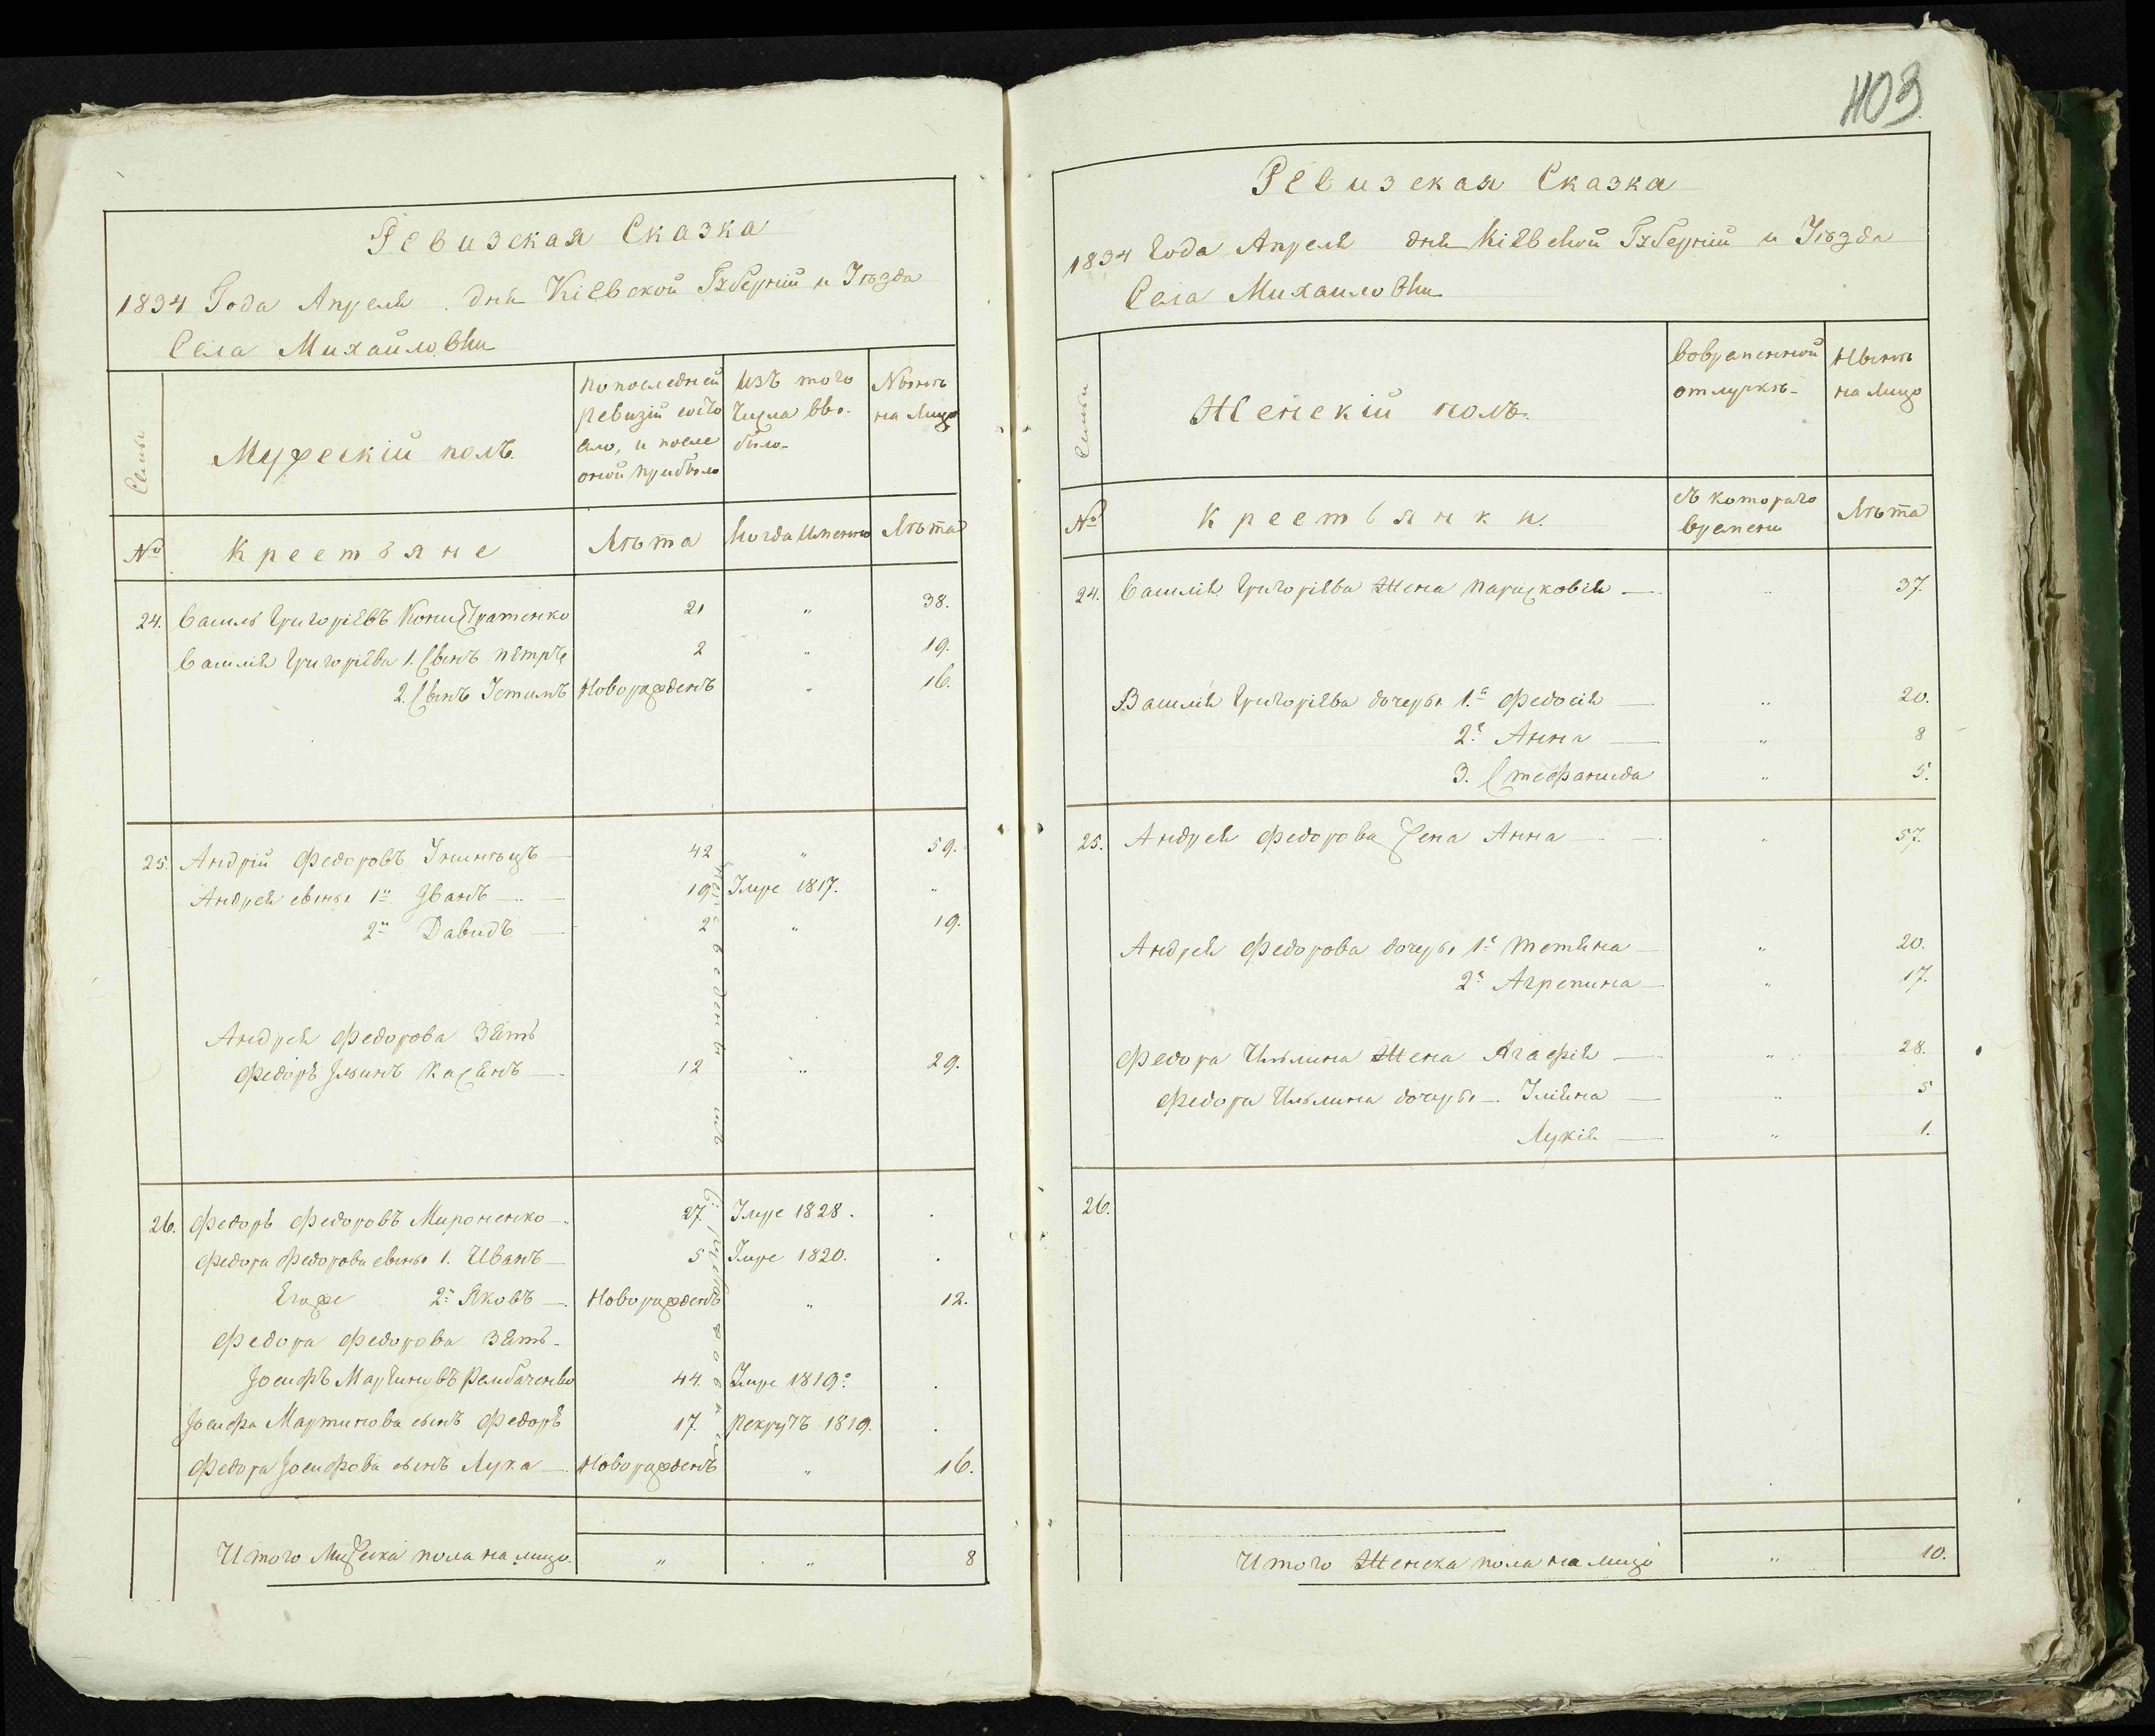 Ревизская Сказка
1834 Года Апреля дня Кіевской Губерніи и Уѣзда
Села Михайловки
Семьи
Мужескій полъ.
По последней
ревизіи состо
яло, и после
оной прибыло
Изъ того
числа выбо-
было-
Нынѣ
на лицо
№
Крестьяне
Лѣта
Когда Именно
Лѣта
24. Василь Григоріевъ 21 „ 38.
Василія Григоріева 1. Сынъ Петръ 2 „ 19.
2. Сынъ Устимъ Новорожденъ „ 16.
25. Андрій Федоровъ 42 „ 59.
Андрея сыны 1й Іванъ 19 Умре 1817. „
2й Давидъ 2 „ 19.
Андрея Федорова Зять
Федоръ Ільинъ 12 „ 29.
26. Федоръ Федоровъ Мироненко 27. Умре 1828. .
Федора Федорова сыны 1. Иванъ 5 Умре 1820. .
Егоже 2й Яковъ Новорожденъ „ 12.
Федора Федорова Зять-
Іосифъ Мартиновъ 44. Умре 1819. .
Іосифа Мартинова сынъ Федоръ 17. рекрутъ 1819. .
Федора Іосифова сынъ Лука Новорожденъ „ 16.
Итого Мужеска пола на лицо. „ „ 8
403
Ревизская Сказка
1834 Года Апреля дня Кіевской Губерніи и Уѣзда
Села Михаиловки
Семьи
Женскій полъ.
Вовременной
отлучкѣ-
Нынѣ
на Лицо
№
Крестьянки.
Съ котораго
времени
Лѣта
24. Василія Григоріева Жена Парасковія „ 37.
Василія Григоріева дочеры 1.я Федосія „ 20.
2.я Анна „ 8
3. Стефанида „ 5.
25. Андрея Федорова Жена Анна „ 57.
Андрея Федорова дочеры 1я Тетяна „ 20.
2я Агрепина „ 17.
Федора Ильина Жена Агафія „ 28.
Федора Ильина дочеры Уліяна „ 5
Лукія „ 1.
26.
Итого Женска пола на лицо „ 10.